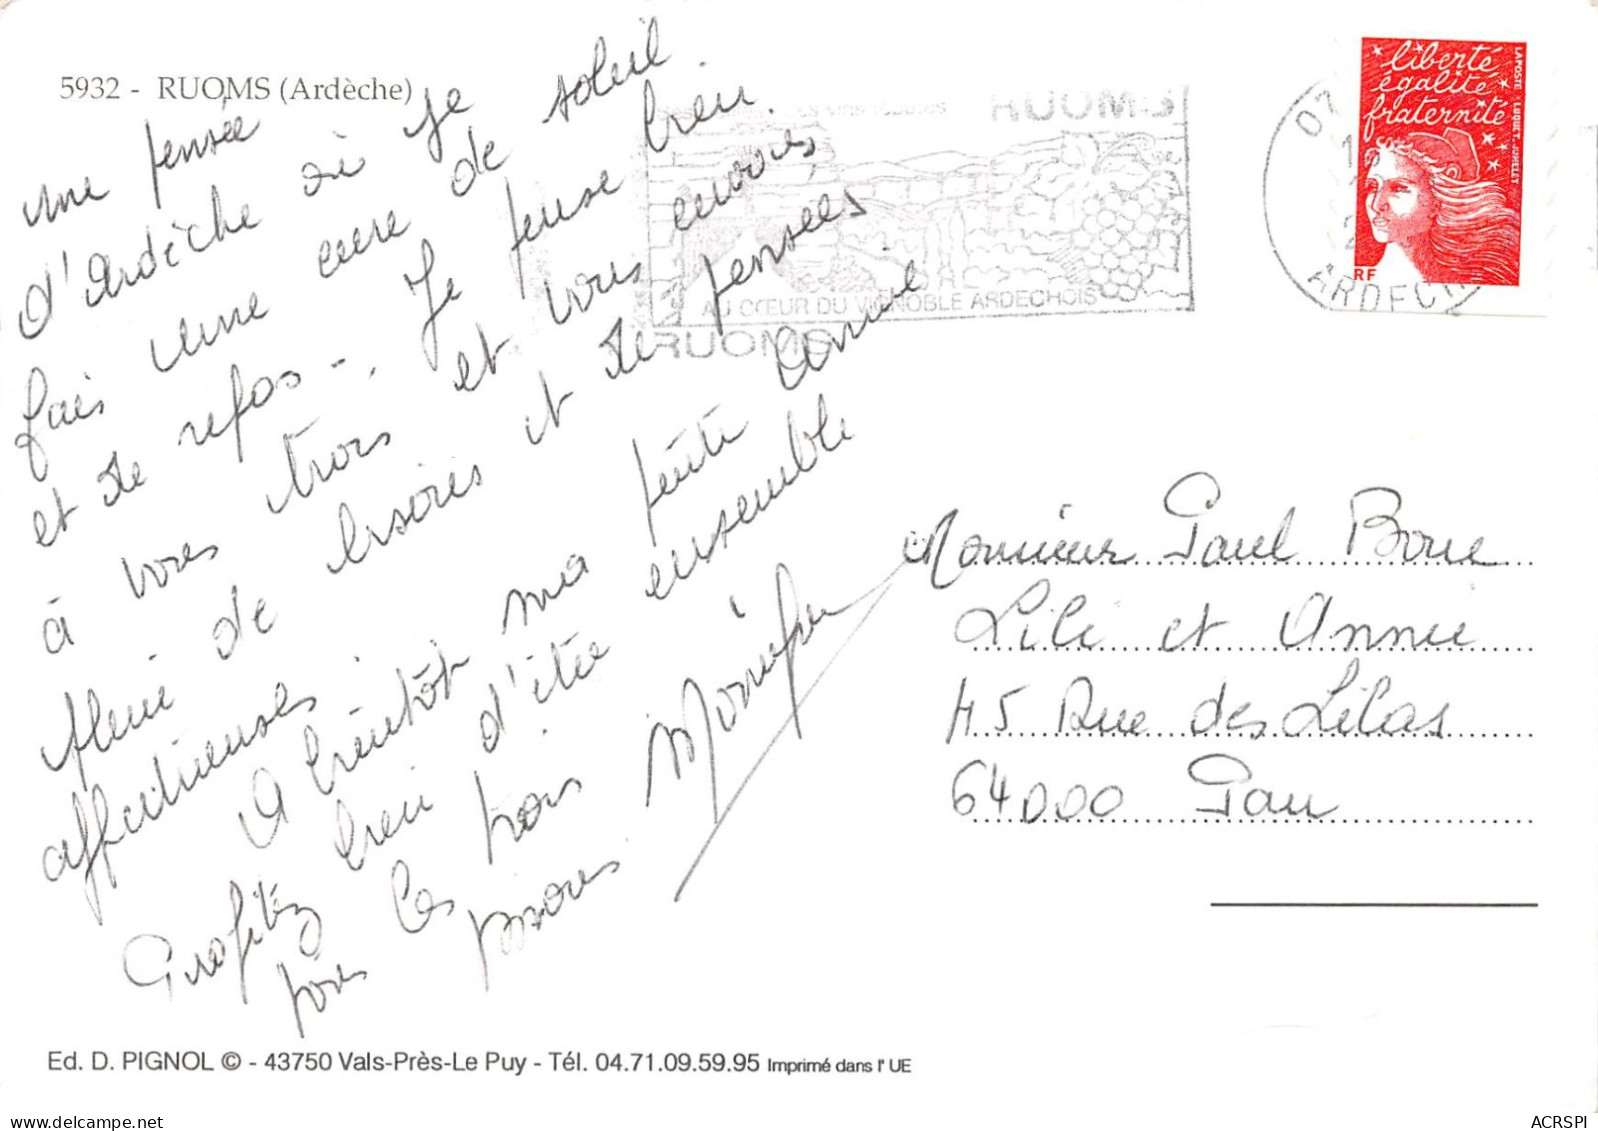 5932 - RUOMS (Ardèche)
une pensée
d'Ardèche où je
fais une cure de soleil
et de repos -. Je pense bien
à vous trois et vous envoies
pleins de bisoies et de pensées
affectueuses.
A bientôt ma petite Annie
Profitez bien d'être ensemble
tous les trois
bisous
RUOMS
AU CŒUR DU VIGNOBLE ARDECHOIS
RUOMS
07
ARDECH
liberté
égalité
fraternité
RF
LA POSTE LUQUET, JUMELET
Monsieur Paul Boue
Lili et Annie
45 Rue des Lilas
64000 Pau
Ed. D. PIGNOL © - 43750 Vals-Près-Le Puy - Tél. 04.71.09.59.95 Imprimé dans l' UE
delcampe.net
ACRSPI